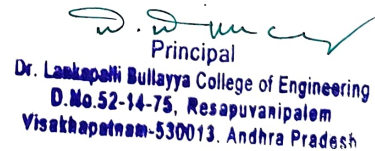 Principal
Dr. Lankapalli Bullayya College of Engineering
D.No.52-14-75, Resapuvanipalem
Visakhapatnam-530013. Andhra Pradesh